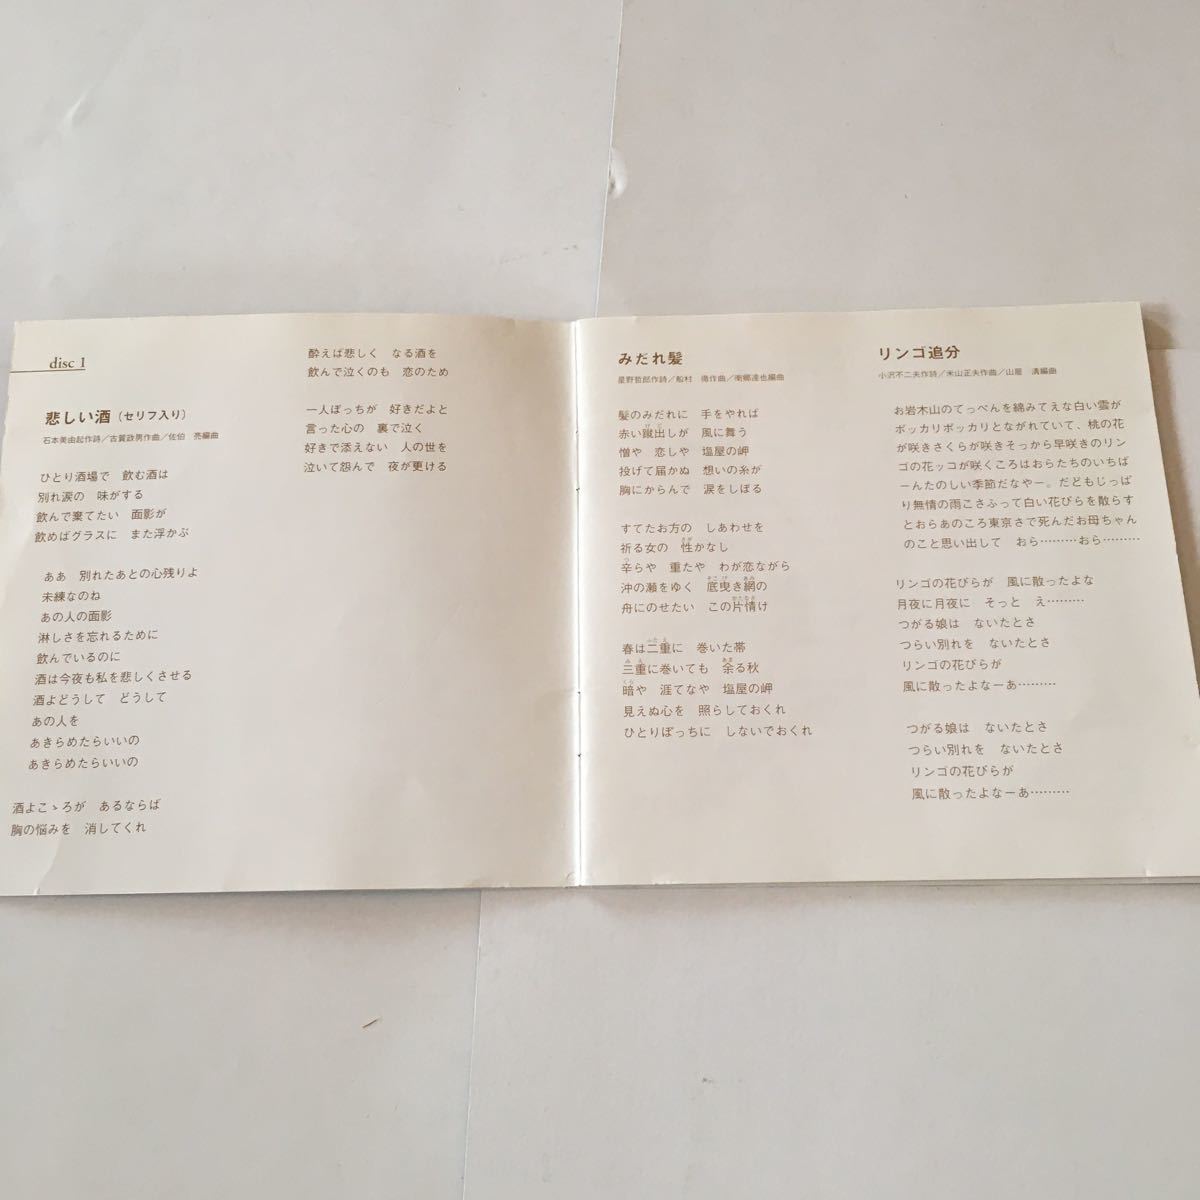 disc 1
悲しい酒（セリフ入り）
石本美由起作詩／古賀政男作曲／佐伯　亮編曲
ひとり酒場で　飲む酒は
別れ涙の　味がする
飲んで棄てたい　面影が
飲めばグラスに　また浮かぶ
ああ　別れたあとの心残りよ
未練なのね
あの人の面影
淋しさを忘れるために
飲んでいるのに
酒は今夜も私を悲しくさせる
酒よどうして　どうして
あの人を
あきらめたらいいの
あきらめたらいいの
酒よこゝろが　あるならば
胸の悩みを　消してくれ
酔えば悲しく　なる酒を
飲んで泣くのも　恋のため
一人ぼっちが　好きだよと
言った心の　裏で泣く
好きで添えない　人の世を
泣いて怨んで　夜が更ける
みだれ髪
星野哲郎作詩／船村　徹作曲／南郷達也編曲
髪のみだれに　手をやれば
赤い蹴出しが　風に舞う
憎や　恋しや　塩屋の岬
投げて届かぬ　想いの糸が
胸にからんで　涙をしぼる
すてたお方の　しあわせを
祈る女の　性かなし
辛らや　重たや　わが恋ながら
沖の瀬をゆく　底曳き網の
舟にのせたい　この片情け
春は二重に　巻いた帯
三重に巻いても　余る秋
暗や　涯てなや　塩屋の岬
見えぬ心を　照らしておくれ
ひとりぼっちに　しないでおくれ
リンゴ追分
小沢不二夫作詩／米山正夫作曲／山屋　清編曲
お岩木山のてっぺんを綿みてえな白い雲が
ポッカリポッカリとながれていて、桃の花
が咲きさくらが咲きそっから早咲きのリン
ゴの花ッコが咲くころはおらたちのいちば
ーんたのしい季節だなやー。だどもじっぱ
り無情の雨こさふって白い花びらを散らす
とおらあのころ東京さで死んだお母ちゃん
のこと思い出して　おら………おら………
リンゴの花びらが　風に散ったよな
月夜に月夜に　そっと　え………
つがる娘は　ないたとさ
つらい別れを　ないたとさ
リンゴの花びらが
風に散ったよなーあ………
つがる娘は　ないたとさ
つらい別れを　ないたとさ
リンゴの花びらが
風に散ったよなーあ………